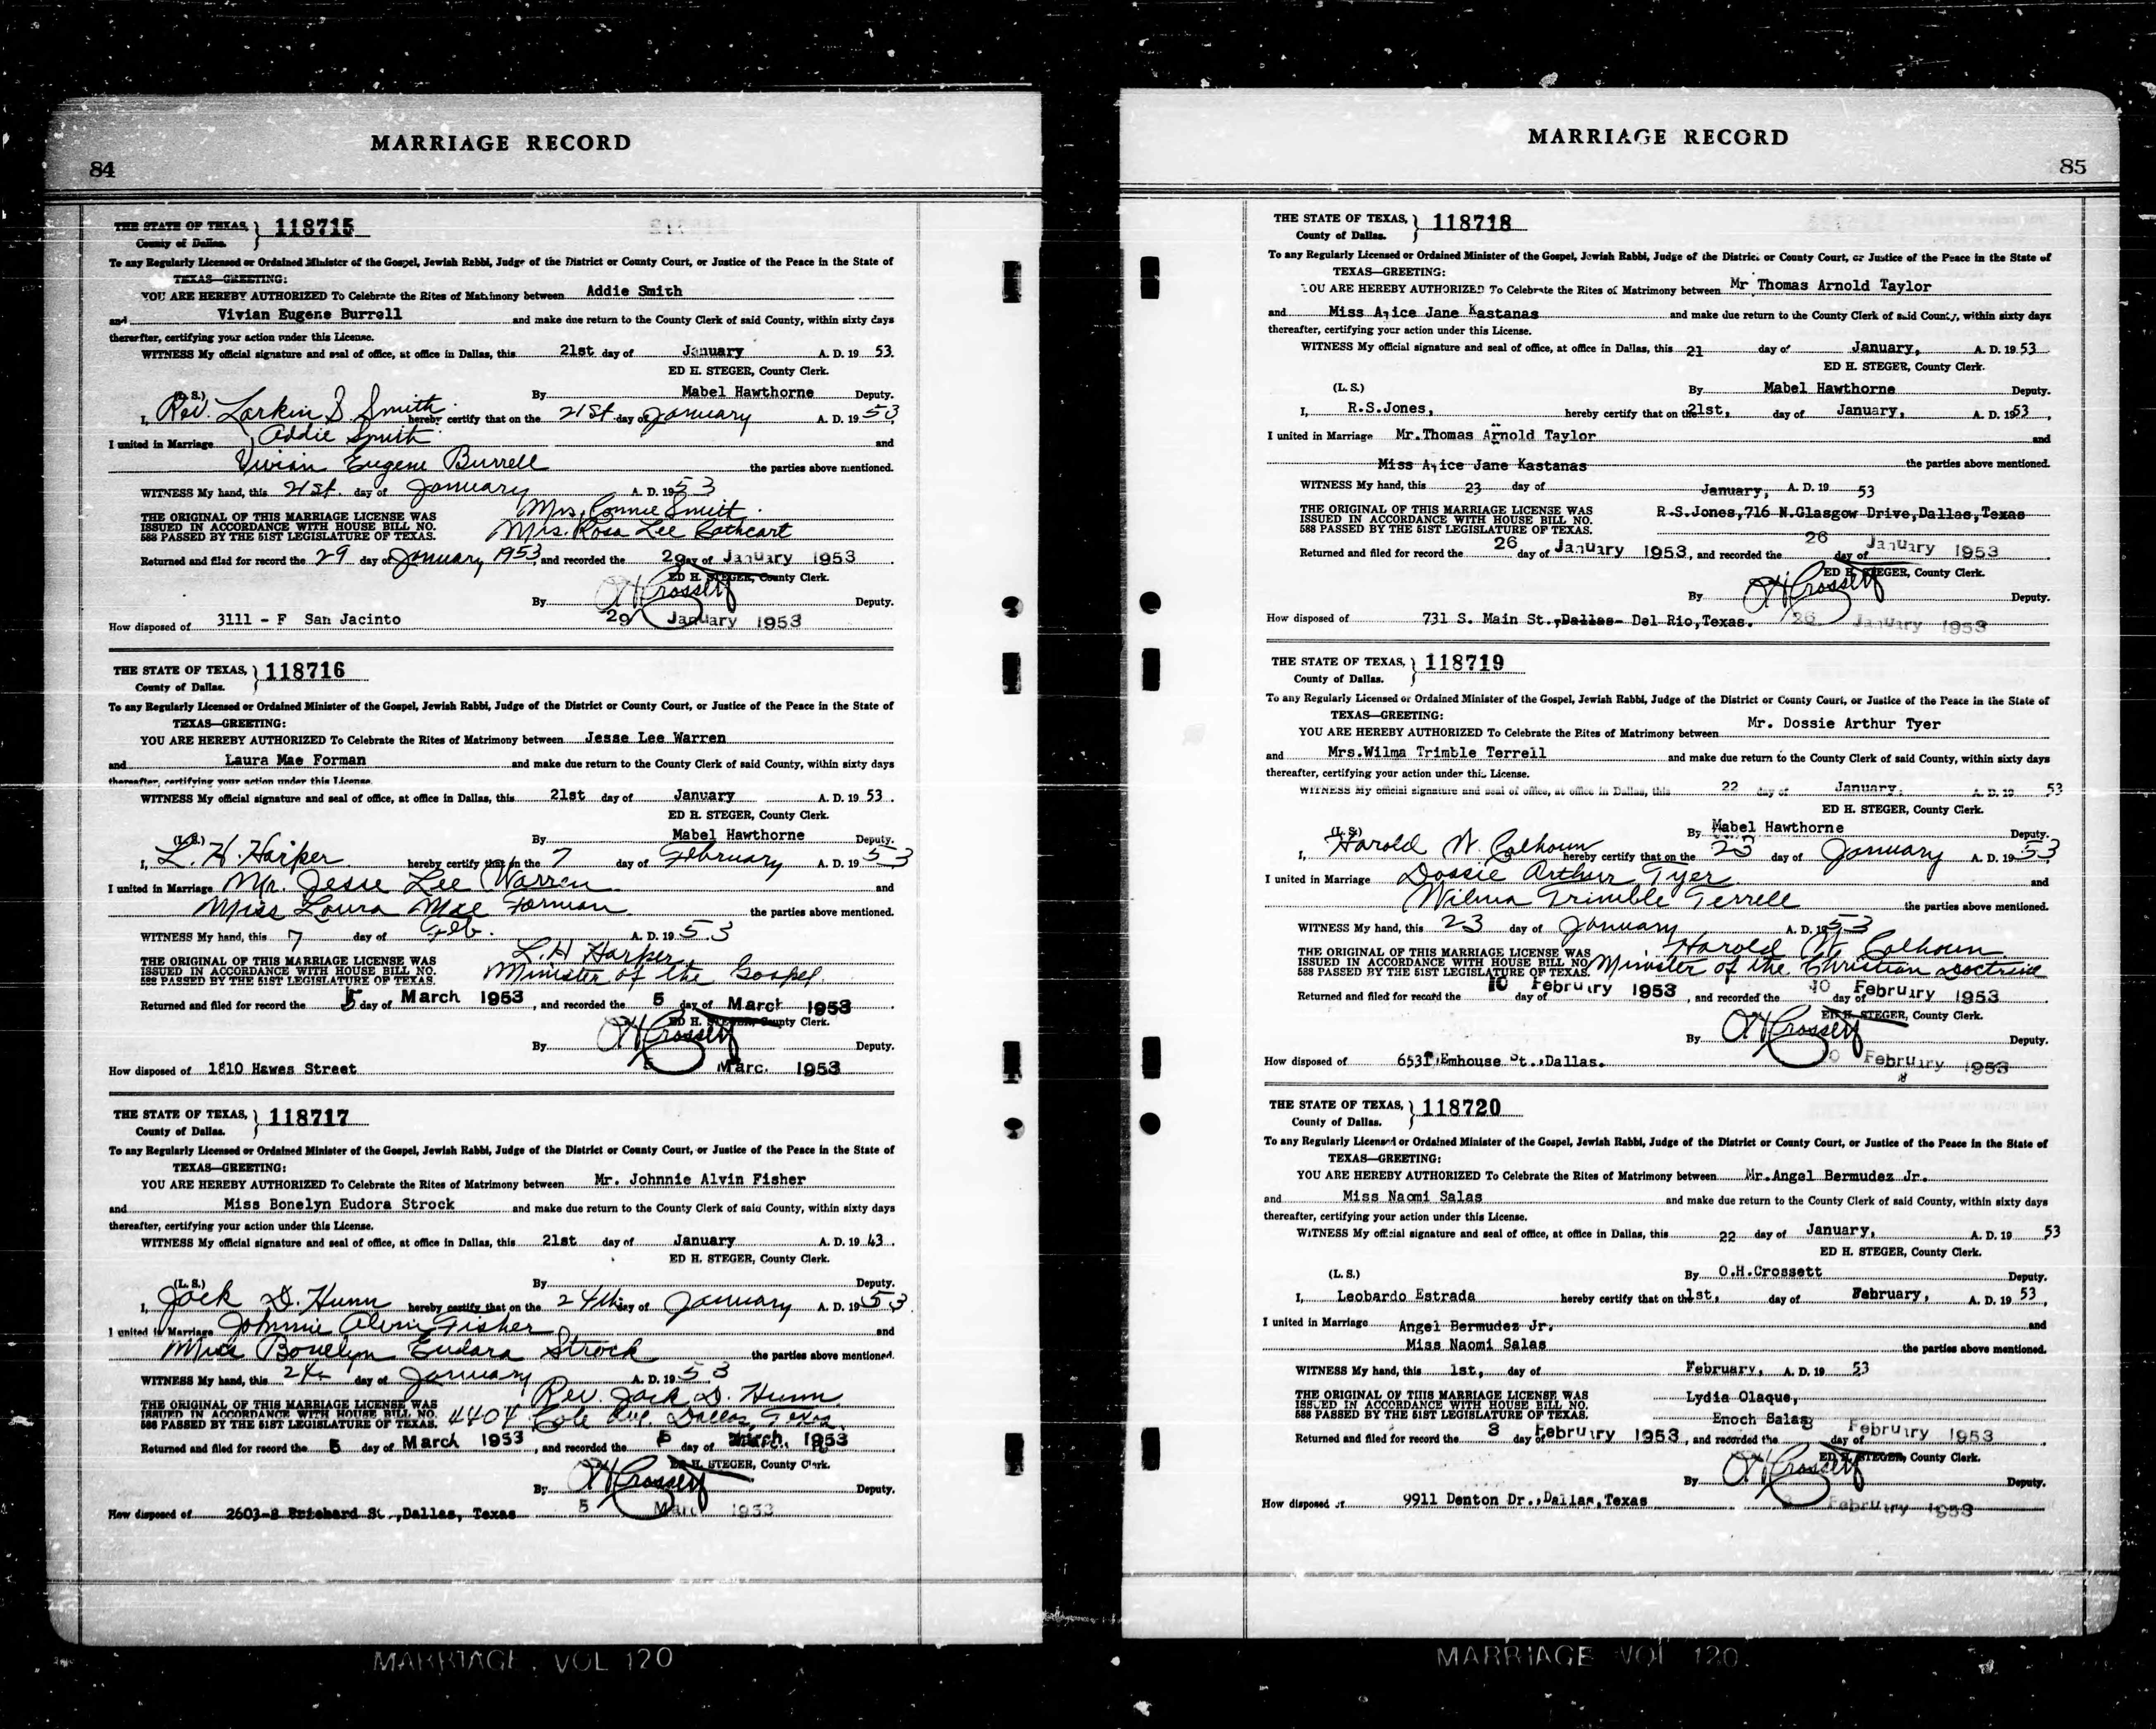 MARRIAGE RECORD
84
THE STATE OF TEXAS, } 118715
County of Dallas.
To any Regularly Licensed or Ordained Minister of the Gospel, Jewish Rabbi, Judge of the District or County Court, or Justice of the Peace in the State of
TEXAS—GREETING:
YOU ARE HEREBY AUTHORIZED To Celebrate the Rites of Matrimony between Addie Smith
and Vivian Eugene Burrell and make due return to the County Clerk of said County, within sixty days
thereafter, certifying your action under this License.
WITNESS My official signature and seal of office, at office in Dallas, this 21st day of January A. D. 19 53.
ED H. STEGER, County Clerk.
(L. S.) By Mabel Hawthorne Deputy.
I, Rev. Larkin S. Smith hereby certify that on the 21st day of January A. D. 19 53
I united in Marriage Addie Smith and
Vivian Eugene Burrell the parties above mentioned.
WITNESS My hand, this 21st. day of January A. D. 19 53
Mrs. Connie Smitt.
THE ORIGINAL OF THIS MARRIAGE LICENSE WAS
ISSUED IN ACCORDANCE WITH HOUSE BILL NO.
588 PASSED BY THE 51ST LEGISLATURE OF TEXAS.
Mrs. Rosa Lee Cathcart
Returned and filed for record the 29 day of January 1953, and recorded the 29 day of January 1953.
ED H. STEGER, County Clerk.
By OHCrossett Deputy.
How disposed of 3111 - F San Jacinto 29 January 1953
THE STATE OF TEXAS, } 118716
County of Dallas.
To any Regularly Licensed or Ordained Minister of the Gospel, Jewish Rabbi, Judge of the District or County Court, or Justice of the Peace in the State of
TEXAS—GREETING:
YOU ARE HEREBY AUTHORIZED To Celebrate the Rites of Matrimony between Jesse Lee Warren
and Laura Mae Forman and make due return to the County Clerk of said County, within sixty days
thereafter, certifying your action under this License.
WITNESS My official signature and seal of office, at office in Dallas, this 21st day of January A. D. 19 53.
ED H. STEGER, County Clerk.
(L. S.) By Mabel Hawthorne Deputy.
I, L. H. Harper hereby certify that on the 7 day of February A. D. 19 53
I united in Marriage Mr. Jesse Lee Warren and
Miss Laura Mae Forman the parties above mentioned.
WITNESS My hand, this 7 day of Feb. A. D. 19 53
L. H Harper
THE ORIGINAL OF THIS MARRIAGE LICENSE WAS
ISSUED IN ACCORDANCE WITH HOUSE BILL NO.
588 PASSED BY THE 51ST LEGISLATURE OF TEXAS.
Minister of the Gospel.
Returned and filed for record the 5 day of March 1953, and recorded the 5 day of March 1953
ED H. STEGER, County Clerk.
By OHCrossett Deputy.
How disposed of 1810 Hawes Street 5 Marc. 1953
THE STATE OF TEXAS, } 118717
County of Dallas.
To any Regularly Licensed or Ordained Minister of the Gospel, Jewish Rabbi, Judge of the District or County Court, or Justice of the Peace in the State of
TEXAS—GREETING:
YOU ARE HEREBY AUTHORIZED To Celebrate the Rites of Matrimony between Mr. Johnnie Alvin Fisher
and Miss Bonelyn Eudora Strock and make due return to the County Clerk of said County, within sixty days
thereafter, certifying your action under this License.
WITNESS My official signature and seal of office, at office in Dallas, this 21st day of January A. D. 19 43.
ED H. STEGER, County Clerk.
(L. S.) By Deputy.
I, Jack D. Hunn hereby certify that on the 24th day of January A. D. 19 53
I united in Marriage Johnnie Alvin Fisher and
Miss Bonelyn Eudora Strock the parties above mentioned.
WITNESS My hand, this 24 day of January A. D. 19 53
Rev. Jack D. Hunn
THE ORIGINAL OF THIS MARRIAGE LICENSE WAS
ISSUED IN ACCORDANCE WITH HOUSE BILL NO.
588 PASSED BY THE 51ST LEGISLATURE OF TEXAS.
4404 Cole Ave. Dallas, Texas
Returned and filed for record the 5 day of March 1953, and recorded the 5 day of March 1953
ED H. STEGER, County Clerk.
By OHCrossett Deputy.
How disposed of 2603-B Prichard St.,Dallas, Texas 5 Mar 1953
MARRIAGE. VOL 120
MARRIAGE RECORD
85
THE STATE OF TEXAS, } 118718
County of Dallas.
To any Regularly Licensed or Ordained Minister of the Gospel, Jewish Rabbi, Judge of the District or County Court, or Justice of the Peace in the State of
TEXAS—GREETING:
YOU ARE HEREBY AUTHORIZED To Celebrate the Rites of Matrimony between Mr Thomas Arnold Taylor
and Miss Alice Jane Kastanas and make due return to the County Clerk of said County, within sixty days
thereafter, certifying your action under this License.
WITNESS My official signature and seal of office, at office in Dallas, this 21 day of January, A. D. 19 53
ED H. STEGER, County Clerk.
(L. S.) By Mabel Hawthorne Deputy.
I, R.S.Jones, hereby certify that on the 21st, day of January, A. D. 19 53,
I united in Marriage Mr.Thomas Arnold Taylor and
Miss Alice Jane Kastanas the parties above mentioned.
WITNESS My hand, this 23 day of January, A. D. 19 53
THE ORIGINAL OF THIS MARRIAGE LICENSE WAS
ISSUED IN ACCORDANCE WITH HOUSE BILL NO.
588 PASSED BY THE 51ST LEGISLATURE OF TEXAS.
R.S.Jones,716 N.Glasgow Drive,Dallas,Texas
Returned and filed for record the 26 day of January 1953, and recorded the 26 day of January 1953
ED H. STEGER, County Clerk.
By OHCrossett Deputy.
How disposed of 731 S. Main St.,Dallas- Del Rio,Texas. 26 January 1953
THE STATE OF TEXAS, } 118719
County of Dallas.
To any Regularly Licensed or Ordained Minister of the Gospel, Jewish Rabbi, Judge of the District or County Court, or Justice of the Peace in the State of
TEXAS—GREETING:
YOU ARE HEREBY AUTHORIZED To Celebrate the Rites of Matrimony between Mr. Dossie Arthur Tyer
and Mrs.Wilma Trimble Terrell and make due return to the County Clerk of said County, within sixty days
thereafter, certifying your action under this License.
WITNESS My official signature and seal of office, at office in Dallas, this 22 day of January, A. D. 19 53
ED H. STEGER, County Clerk.
(L. S.) By Mabel Hawthorne Deputy.
I, Harold W. Calhoun hereby certify that on the 23 day of January A. D. 19 53
I united in Marriage Dossie Arthur Tyer and
Wilma Trimble Terrell the parties above mentioned.
WITNESS My hand, this 23 day of January A. D. 19 53
Harold W. Calhoun
THE ORIGINAL OF THIS MARRIAGE LICENSE WAS
ISSUED IN ACCORDANCE WITH HOUSE BILL NO.
588 PASSED BY THE 51ST LEGISLATURE OF TEXAS.
Minister of the Christian Doctrine
Returned and filed for record the 10 day of February 1953, and recorded the 10 day of February 1953
ED H. STEGER, County Clerk.
By OHCrossett Deputy.
How disposed of 6531 Emhouse St.,Dallas. 10 February 1953
THE STATE OF TEXAS, } 118720
County of Dallas.
To any Regularly Licensed or Ordained Minister of the Gospel, Jewish Rabbi, Judge of the District or County Court, or Justice of the Peace in the State of
TEXAS—GREETING:
YOU ARE HEREBY AUTHORIZED To Celebrate the Rites of Matrimony between Mr.Angel Bermudez Jr.
and Miss Naomi Salas and make due return to the County Clerk of said County, within sixty days
thereafter, certifying your action under this License.
WITNESS My official signature and seal of office, at office in Dallas, this 22 day of January, A. D. 19 53
ED H. STEGER, County Clerk.
(L. S.) By O.H.Crossett Deputy.
I, Leobardo Estrada hereby certify that on the 1st, day of February, A. D. 19 53,
I united in Marriage Angel Bermudez Jr. and
Miss Naomi Salas the parties above mentioned.
WITNESS My hand, this 1st, day of February, A. D. 19 53
THE ORIGINAL OF THIS MARRIAGE LICENSE WAS
ISSUED IN ACCORDANCE WITH HOUSE BILL NO.
588 PASSED BY THE 51ST LEGISLATURE OF TEXAS.
Lydia Olaque,
Enoch Salas
Returned and filed for record the 3 day of February 1953, and recorded the 3 day of February 1953
ED H. STEGER, County Clerk.
By OHCrossett Deputy.
How disposed of 9911 Denton Dr.,Dallas,Texas February 1953
MARRIAGE VOL 120.